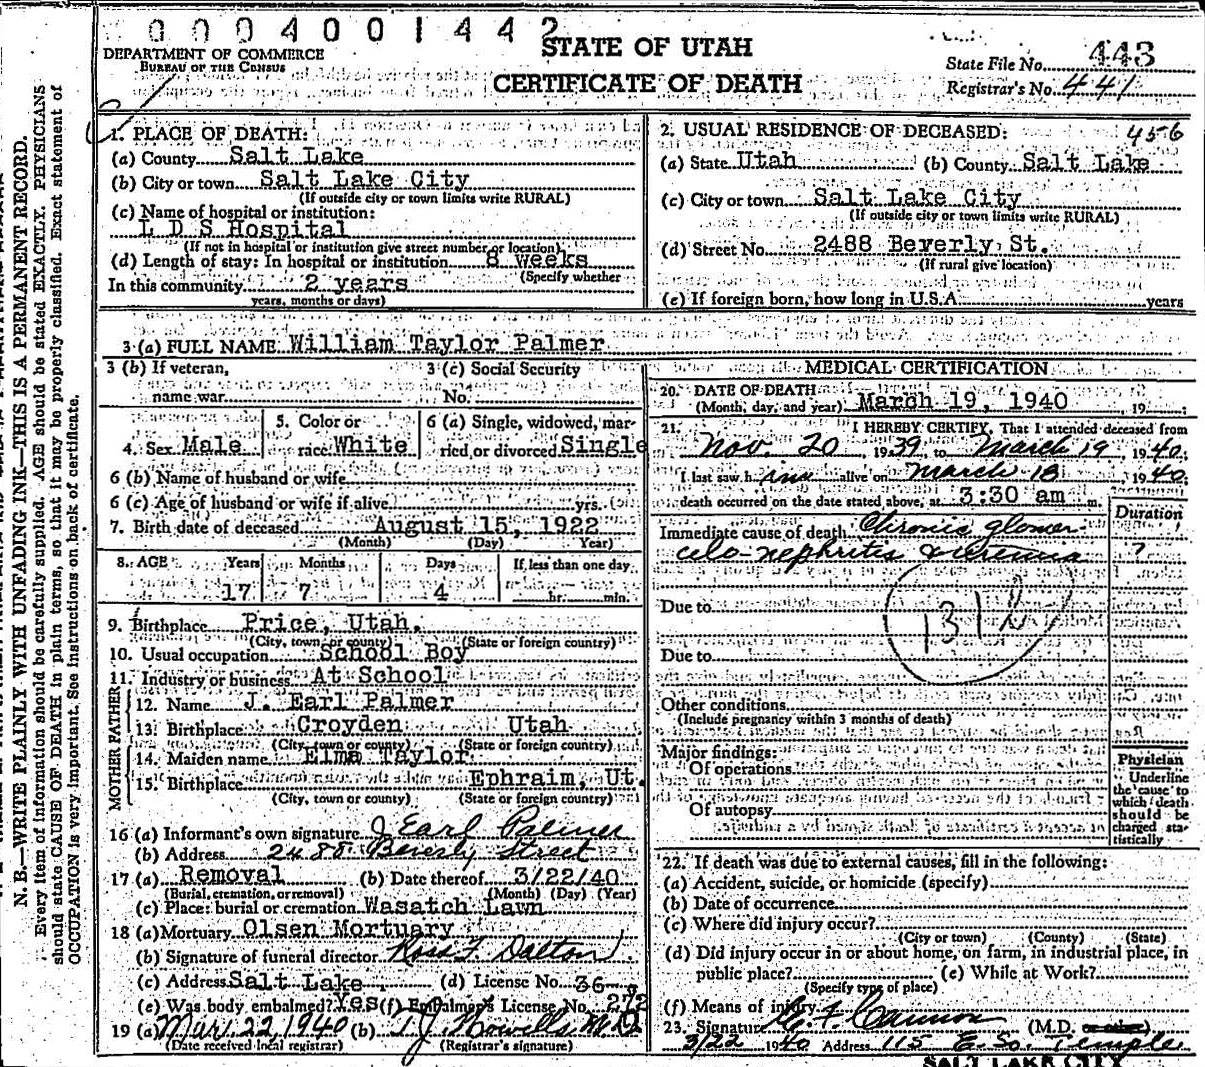 0004001442
DEPARTMENT OF COMMERCE
BUREAU OF THE CENSUS
STATE OF UTAH
CERTIFICATE OF DEATH
State File No. 443
Registrar's No. 441
N. B.—WRITE PLAINLY WITH UNFADING INK—THIS IS A PERMANENT RECORD.
Every item of information should be carefully supplied. AGE should be stated EXACTLY. PHYSICIANS
should state CAUSE OF DEATH in plain terms, so that it may be properly classified. Exact statement of
OCCUPATION is very important. See instructions on back of certificate.
1. PLACE OF DEATH:
(a) County Salt Lake
(b) City or town Salt Lake City
(If outside city or town limits write RURAL)
(c) Name of hospital or institution:
L D S Hospital
(If not in hospital or institution give street number or location)
(d) Length of stay: In hospital or institution 8 weeks
(Specify whether
In this community 2 years
years, months or days)
2. USUAL RESIDENCE OF DECEASED: 456
(a) State Utah (b) County Salt Lake
(c) City or town Salt Lake City
(If outside city or town limits write RURAL)
(d) Street No. 2488 Beverly St.
(If rural give location)
(e) If foreign born, how long in U.S.A. years
3 (a) FULL NAME William Taylor Palmer
3 (b) If veteran,
name war
3 (c) Social Security
No.
4. Sex Male
5. Color or
race White
6 (a) Single, widowed, mar-
ried, or divorced Single
6 (b) Name of husband or wife
6 (c) Age of husband or wife if alive yrs.
7. Birth date of deceased August 15, 1922
(Month) (Day) Year)
8. AGE Years Months Days If less than one day
17 7 4 hr. min.
9. Birthplace Price, Utah.
(City, town or county) (State or foreign country)
10. Usual occupation School Boy
11. Industry or business At School
FATHER
12. Name J. Earl Palmer
13. Birthplace Croyden Utah
(City, town or county) (State or foreign country)
MOTHER
14. Maiden name Elma Taylor
15. Birthplace Ephraim, Ut.
(City, town or county) (State or foreign country)
16 (a) Informant's own signature J Earl Palmer
(b) Address 2488 Beverly Street
17 (a) Removal (b) Date thereof 3/22/40
(Burial, cremation, or removal) (Month) (Day) (Year)
(c) Place: burial or cremation Wasatch Lawn
18 (a) Mortuary Olsen Mortuary
(b) Signature of funeral director Ross F. Dalton
(c) Address Salt Lake (d) License No. 36
(e) Was body embalmed? Yes (f) Embalmer's License No. 272
19 (a) Mar. 22, 1940 (b) T. J. Howells M.D.
(Date received local registrar) (Registrar's signature)
MEDICAL CERTIFICATION
20. DATE OF DEATH
(Month, day, and year) March 19, 1940, 19
21. I HEREBY CERTIFY, That I attended deceased from
Nov. 20, 1939, to March 19, 1940;
I last saw him alive on March 18, 1940;
death occurred on the date stated above, at 3:30 am m.
Duration
Immediate cause of death Chronic glomer-
ulo-nephritis & uremia ?
131 2
Due to
Due to
Other conditions
(Include pregnancy within 3 months of death)
Major findings:
Of operations
Of autopsy
Physician
Underline
the cause to
which death
should be
charged sta-
tistically
22. If death was due to external causes, fill in the following:
(a) Accident, suicide, or homicide (specify)
(b) Date of occurrence
(c) Where did injury occur?
(City or town) (County) (State)
(d) Did injury occur in or about home, on farm, in industrial place, in
public place? (e) While at Work?
(Specify type of place)
(f) Means of injury
23. Signature C. F. Cannon (M.D. or other)
3/22 1940 Address 115 E. So. Temple
SALT LAKE CITY